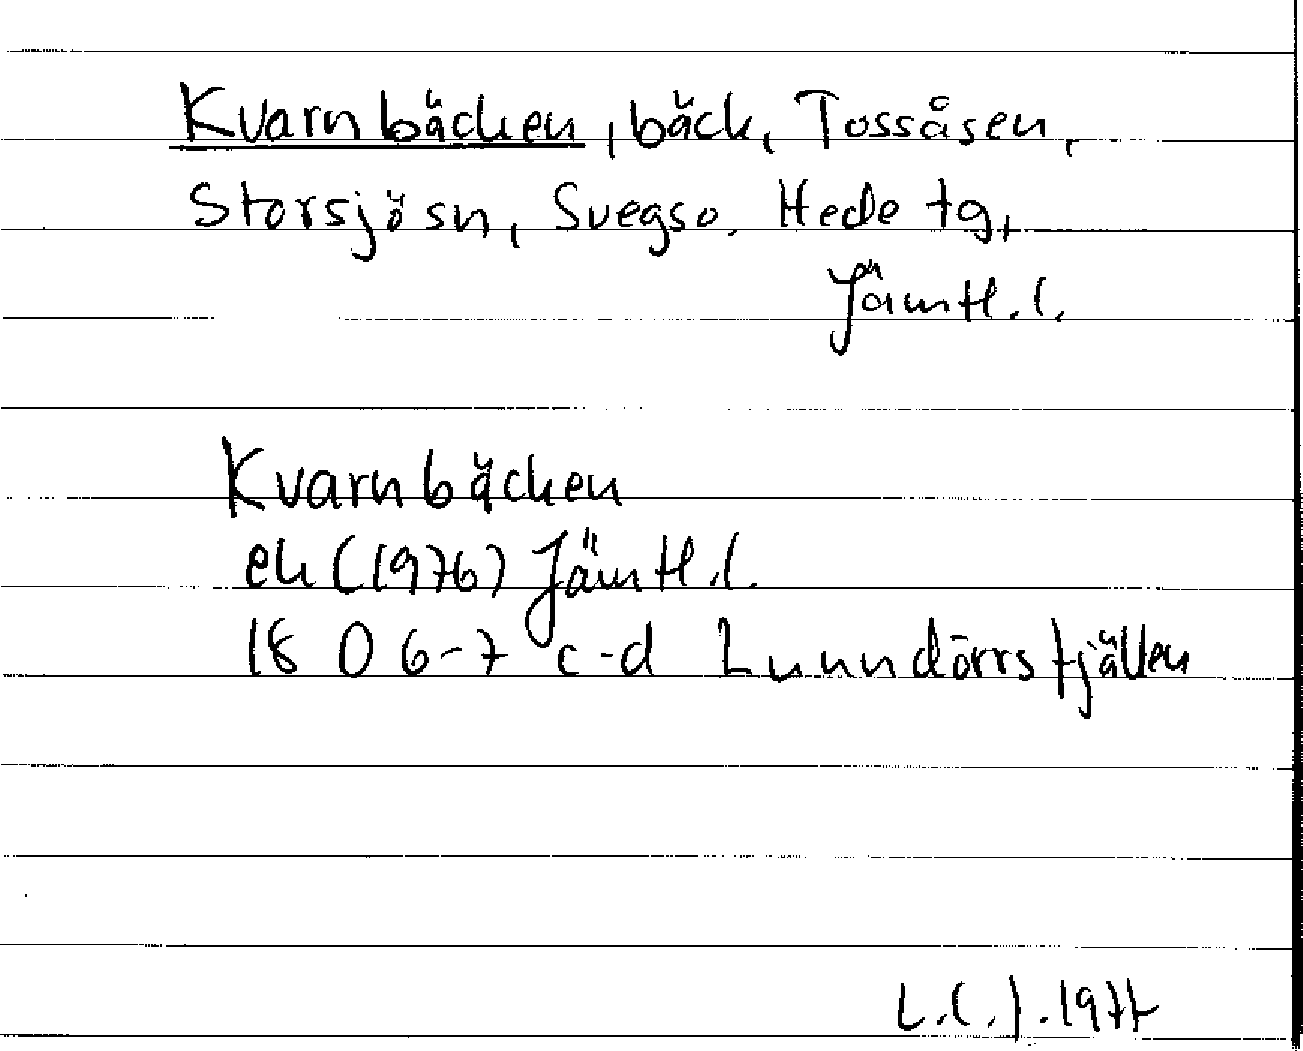 Kvarnbäcken, bäck, Tossåsen,
Storsjö sn, Svegs o. Hede tg,
Jämtl. l.
Kvarnbäcken
ek (1976) Jämtl. l.
18 D 6-7 c-d Lunndörrsfjällen
1977